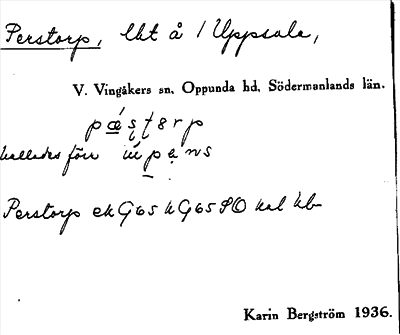 Perstorp, lht å / Uppsala,
V. Vingåkers sn, Oppunda hd, Södermanlands län.
kallades förr
Perstorp ek G65 h G65 PO kal hb
Karin Bergström 1936.